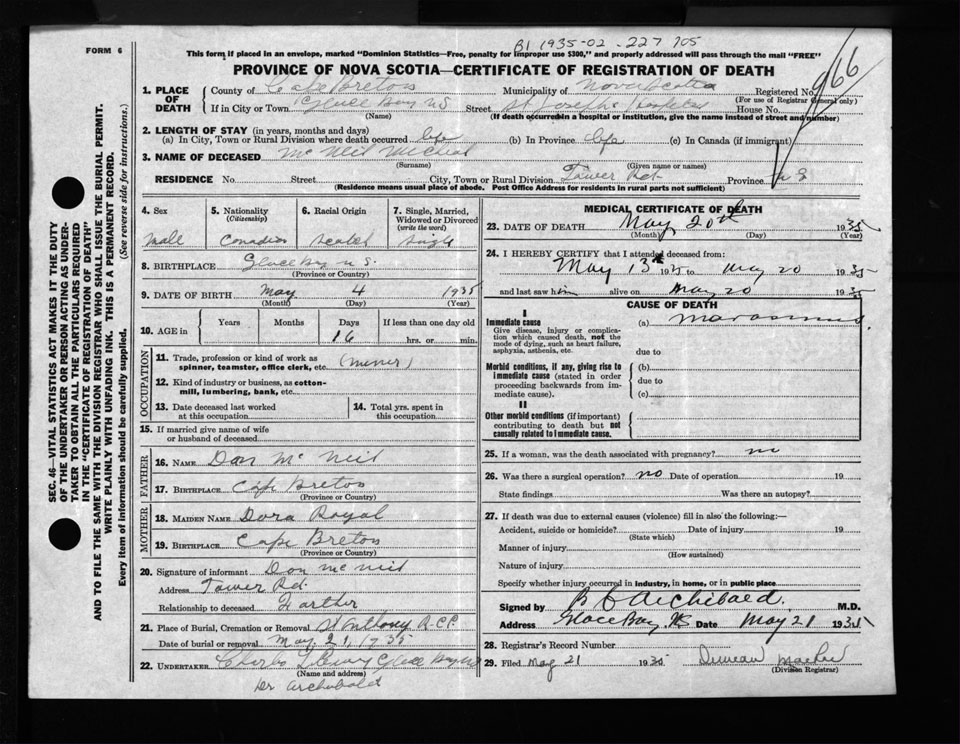 FORM 6
B1 1935-02-227 705
This form if placed in an envelope, marked "Dominion Statistics—Free, penalty for improper use $300," and properly addressed will pass through the mail "FREE"
PROVINCE OF NOVA SCOTIA—CERTIFICATE OF REGISTRATION OF DEATH
966
1. PLACE OF DEATH County of Cape Breton Municipality of Nova Scotia Registered No.
(For use of Registrar General only)
If in City or Town Glace Bay NS Street St Josephs Hospital House No.
(Name) (If death occurred in a hospital or institution, give the name instead of street and number)
2. LENGTH OF STAY (in years, months and days)
(a) In City, Town or Rural Division where death occurred life (b) In Province life (c) In Canada (if immigrant)
3. NAME OF DECEASED McNeil Micheal
(Surname) (Given name or names)
RESIDENCE No. Street City, Town or Rural Division Tower Rd. Province N S
(Residence means usual place of abode. Post Office Address for residents in rural parts not sufficient)
SEC. 46—VITAL STATISTICS ACT MAKES IT THE DUTY
OF THE UNDERTAKER OR PERSON ACTING AS UNDER-
TAKER TO OBTAIN ALL THE PARTICULARS REQUIRED
IN THE "CERTIFICATE OF REGISTRATION OF DEATH"
AND TO FILE THE SAME WITH THE DIVISION REGISTRAR WHO SHALL ISSUE THE BURIAL PERMIT.
WRITE PLAINLY WITH UNFADING INK. THIS IS A PERMANENT RECORD.
Every item of information should be carefully supplied. (See reverse side for instructions.)
4. Sex 5. Nationality (Citizenship) 6. Racial Origin 7. Single, Married, Widowed or Divorced (write the word)
Male Canadian Single
8. BIRTHPLACE Glace Bay N S.
(Province or Country)
9. DATE OF BIRTH May 4 1935
(Month) (Day) (Year)
10. AGE in Years Months Days If less than one day old
16 hrs. or min.
OCCUPATION
11. Trade, profession or kind of work as spinner, teamster, office clerk, etc. (miner)
12. Kind of industry or business, as cotton-mill, lumbering, bank, etc.
13. Date deceased last worked at this occupation
14. Total yrs. spent in this occupation
15. If married give name of wife or husband of deceased
FATHER
16. NAME Dan McNeil
17. BIRTHPLACE Cape Breton
(Province or Country)
MOTHER
18. MAIDEN NAME Dora Royal
19. BIRTHPLACE Cape Breton
(Province or Country)
20. Signature of informant Dan McNeil
Address Tower Rd.
Relationship to deceased Farther
21. Place of Burial, Cremation or Removal St Anthony
Date of burial or removal May 21, 1935
22. UNDERTAKER Glace Bay NS
(Name and address)
Dr Archibald
MEDICAL CERTIFICATE OF DEATH
23. DATE OF DEATH May 20th 1935
(Month) (Day) (Year)
24. I HEREBY CERTIFY that I attended deceased from:
May 13th 1935 to May 20 1935
and last saw him alive on May 20 1935
CAUSE OF DEATH
I
Immediate cause (a) marasmus.
Give disease, injury or complication which caused death, not the mode of dying, such as heart failure, asphyxia, asthenia, etc.
due to
Morbid conditions, if any, giving rise to immediate cause (stated in order proceeding backwards from immediate cause).
(b)
due to
(c)
II
Other morbid conditions (if important) contributing to death but not causally related to immediate cause.
25. If a woman, was the death associated with pregnancy? no
26. Was there a surgical operation? no Date of operation 19
State findings Was there an autopsy?
27. If death was due to external causes (violence) fill in also the following:—
Accident, suicide or homicide? Date of injury 19
(State which)
Manner of injury
(How sustained)
Nature of injury
Specify whether injury occurred in industry, in home, or in public place
Signed by Archibald. M.D.
Address Glace Bay, NS Date May 21 1935
28. Registrar's Record Number
29. Filed May 21 1935 Duncan
(Division Registrar)